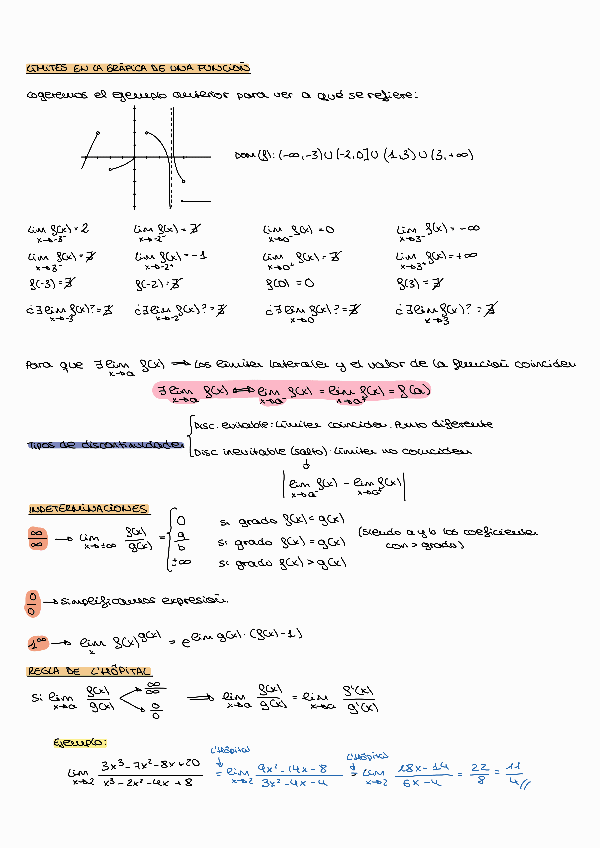 LÍMITES EN LA GRÁFICA DE UNA FUNCIÓN
Cogeremos el ejemplo anterior para ver a qué se refiere:
Dom(f): (-∞,-3) ∪ [-2,0] ∪ (1,3) ∪ (3,+∞)
lim x→-3⁻ f(x) = 2 lim x→-2⁻ f(x) = ∄ lim x→0⁻ f(x) = 0 lim x→3⁻ f(x) = -∞
lim x→3⁻ f(x) = ∄ lim x→-2⁺ f(x) = -1 lim x→0⁺ f(x) = ∄ lim x→3⁺ f(x) = +∞
f(-3) = ∄ f(-2) = ∄ f(0) = 0 f(3) = ∄
¿∃ lim x→-3 f(x)? = ∄ ¿∃ lim x→-2 f(x)? = ∄ ¿∃ lim x→0 f(x)? = ∄ ¿∃ lim x→3 f(x)? = ∄
Para que ∃ lim x→a f(x) → los límites laterales y el valor de la función coinciden
∃ lim x→a f(x) ⟺ lim x→a⁻ f(x) = lim x→a⁺ f(x) = f(a)
Tipos de discontinuidades
Disc. evitable: Límites coinciden. Punto diferente
Disc inevitable (salto): Límites no coinciden
| lim x→a⁻ f(x) - lim x→a⁺ f(x) |
INDETERMINACIONES
∞/∞ → lim x→±∞ f(x)/g(x) =
0 si grado f(x) = g(x)
a/b si grado f(x) = g(x) (siendo a y b los coeficientes con > grado)
±∞ si grado f(x) > g(x)
0/0 → simplificamos expresión.
1^∞ → lim x f(x)^g(x) = e^lim g(x)·(f(x)-1)
REGLA DE L'HÔPITAL
Si lim x→a f(x)/g(x) ∞/∞ 0/0 ⟹ lim x→a f(x)/g(x) = lim x→a f'(x)/g'(x)
Ejemplo:
L'Hôpital L'Hôpital
lim x→2 3x³-7x²-8x+20 / x³-2x²-4x+8 = lim x→2 9x²-14x-8 / 3x²-4x-4 = lim x→2 18x-14 / 6x-4 = 22/8 = 11/4 //